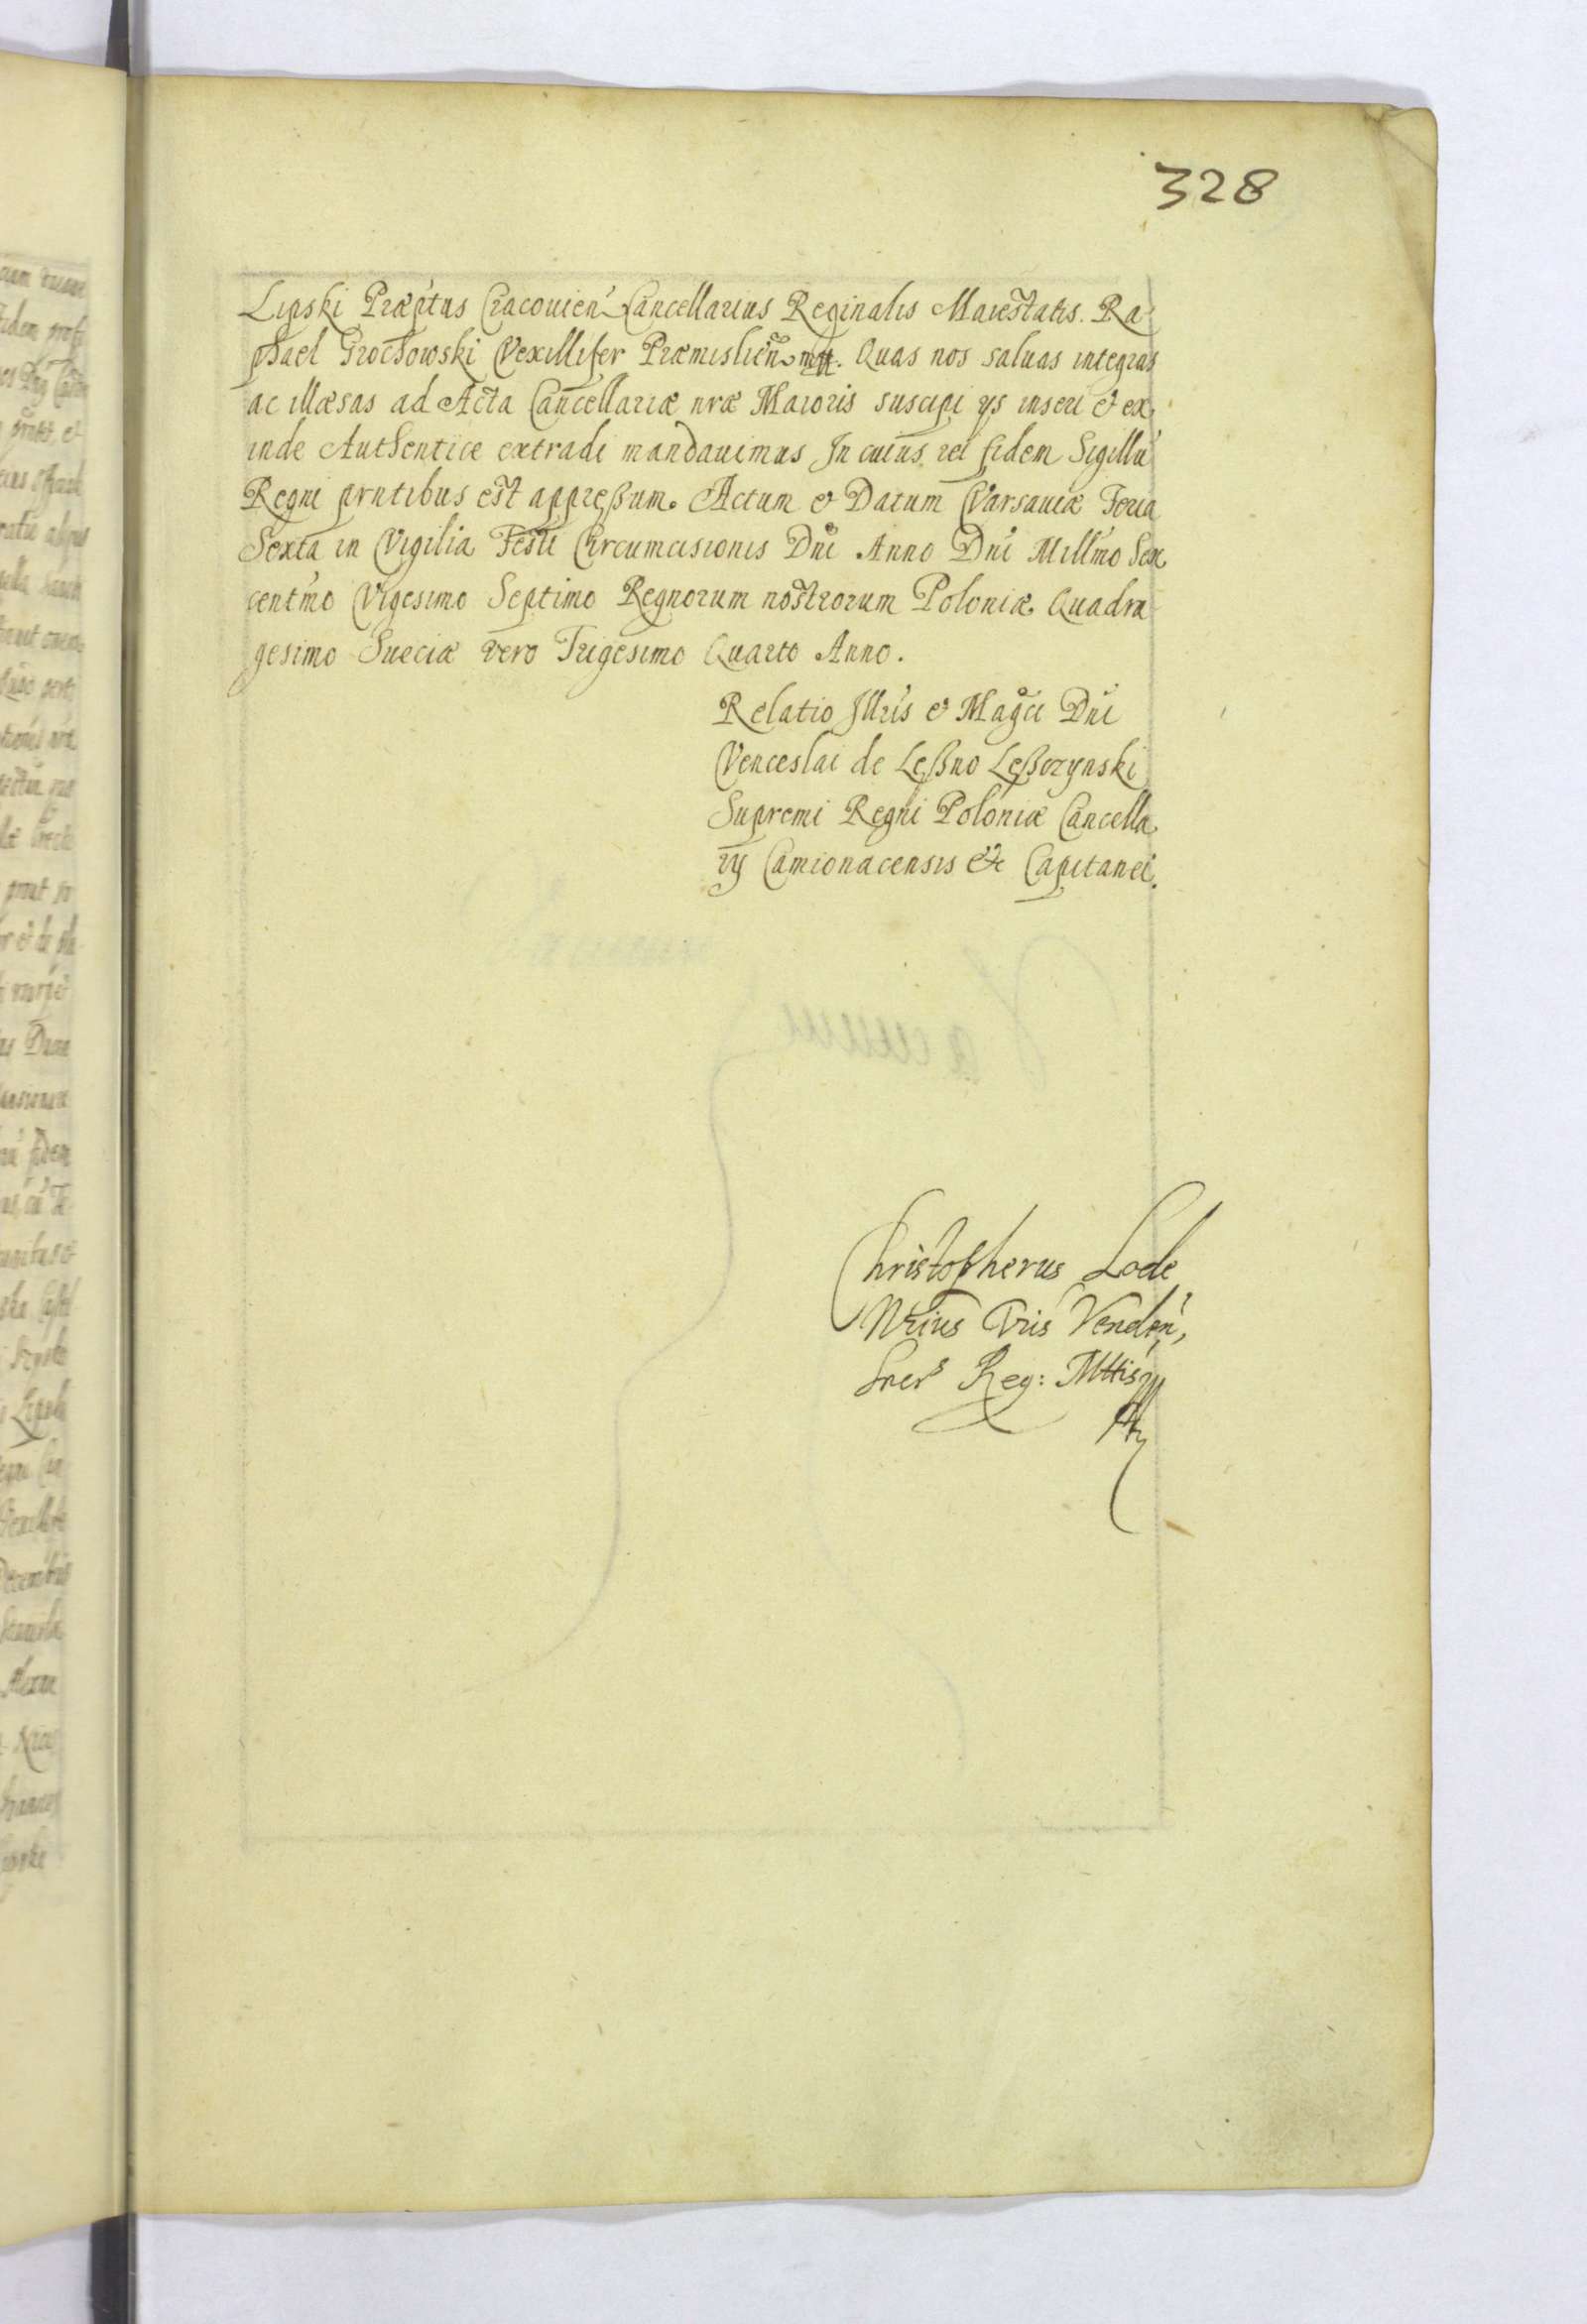 328
Lipski Præptus Cracouien Cancellarius Reginalis Maiestatis. Ra
phael Grochowski Vexillifer Præmislien mp. Quas nos saluas integras
ac illæsas ad Acta Cancellariæ nræ Maioris suscipi ys inseri et ex
inde Authentice extradi mandauimus In cuius rei fidem Sigillu
Regni prntibus est appreßum. Actum et Datum Varsauiæ Feria
Sexta in Vigilia Festi Circumcisionis Dni Anno Dni Millmo Sex
centmo Vigesimo Septimo Regnorum nostrorum Poloniæ Quadra
gesimo Sueciæ vero Trigesimo Quarto Anno.
Relatio Jllris et Magci Dni
Venceslai de Leßno Leßczynski
Supremi Regni Poloniæ Cancella
ry Camionacensis etc Capitanei.
Christopherus Lode
Nrius Tris Venden,
Srers Reg: Mttis